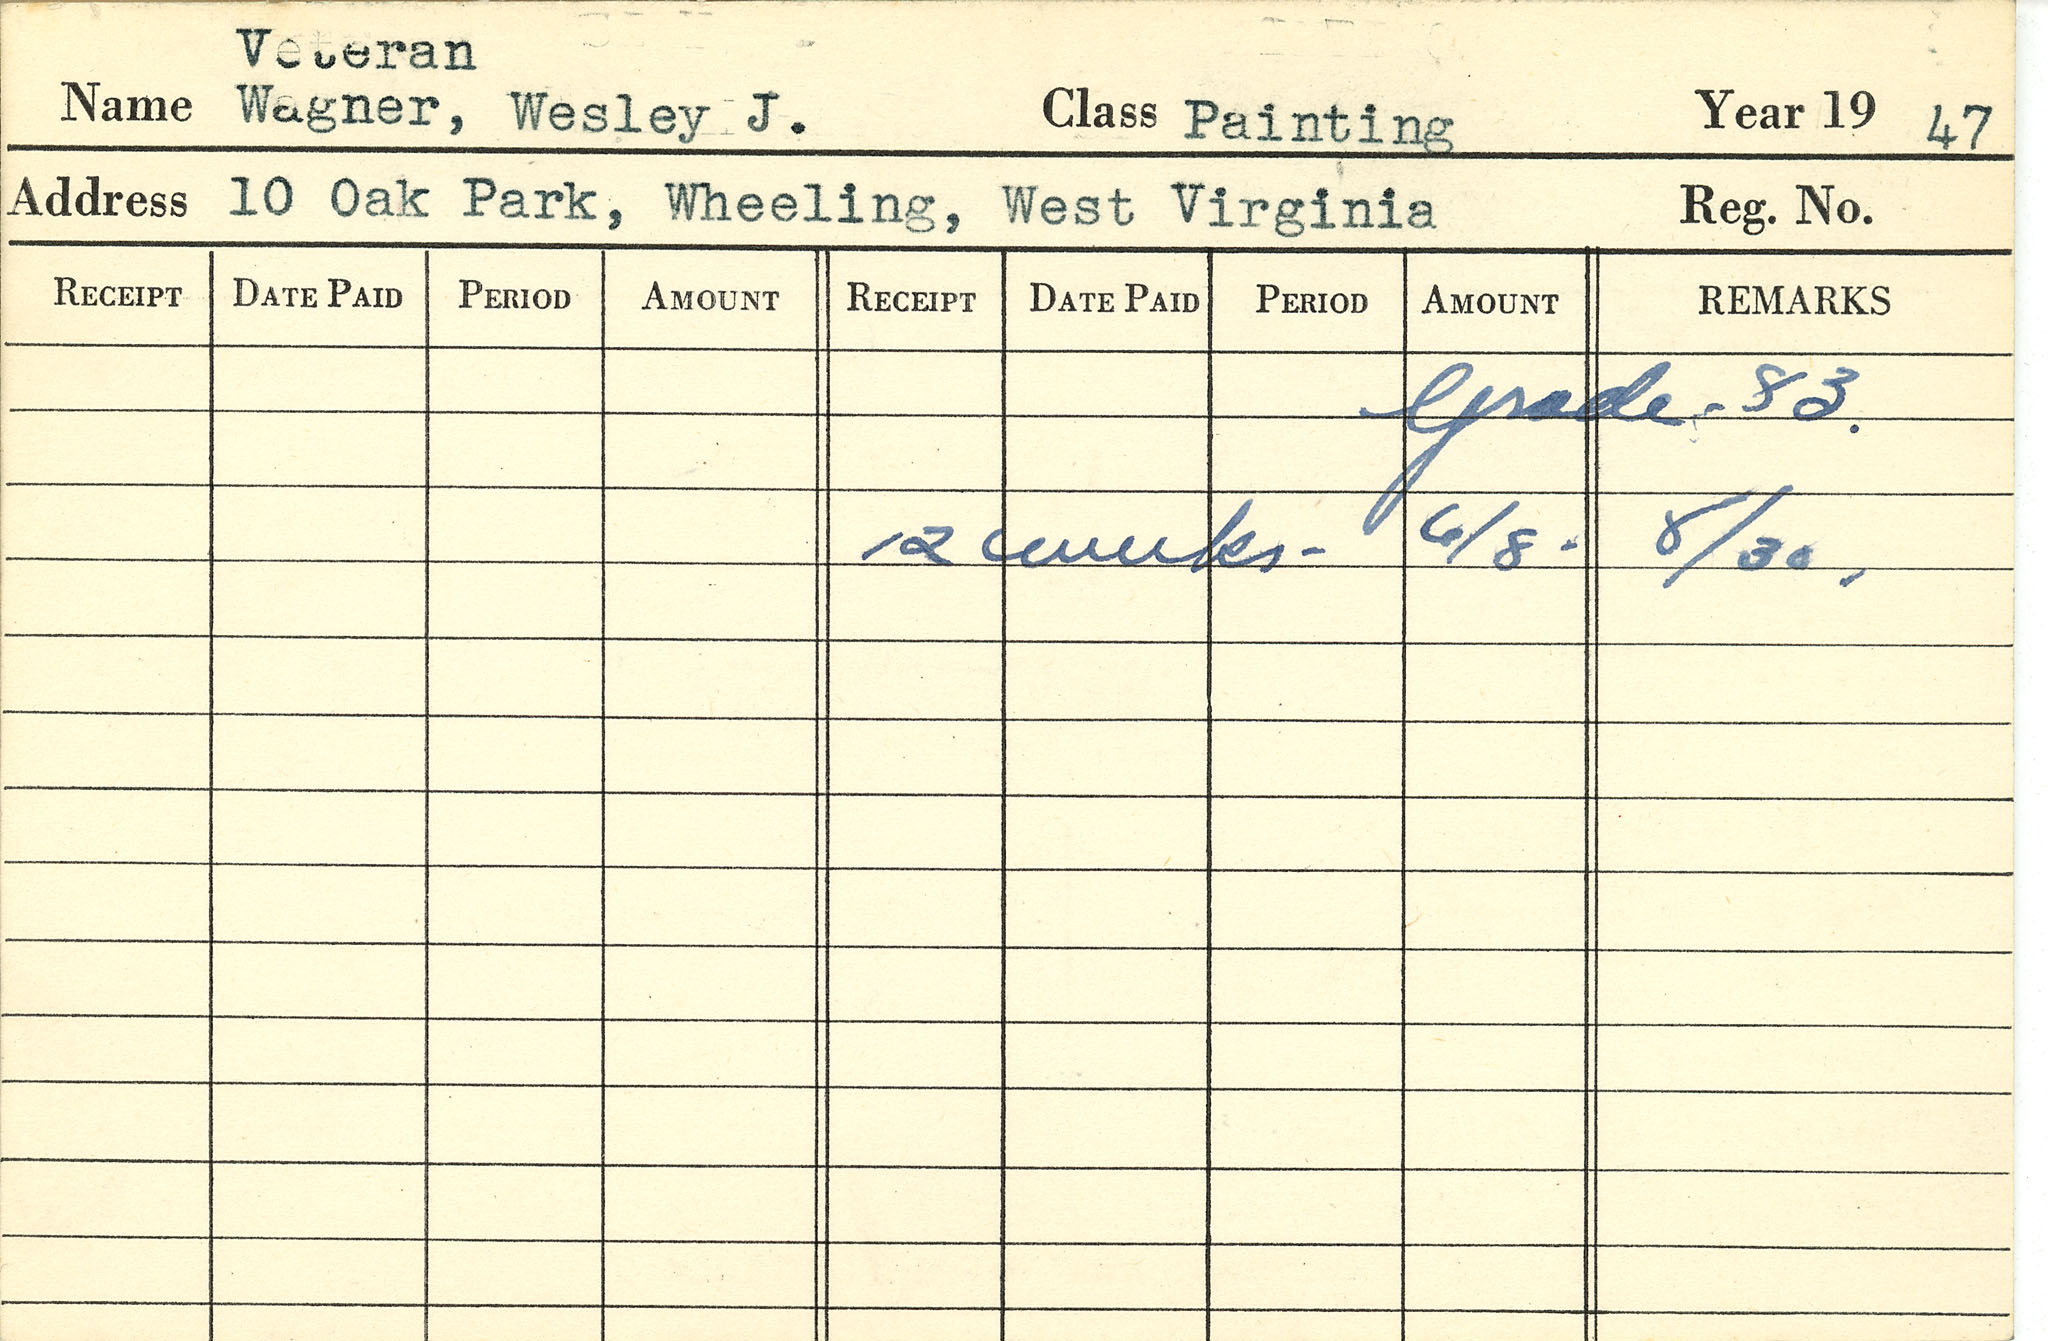 Veteran
Name Wagner, Wesley J. Class Painting Year 19 47
Address 10 Oak Park, Wheeling, West Virginia Reg. No.
RECEIPT DATE PAID PERIOD AMOUNT RECEIPT DATE PAID PERIOD AMOUNT REMARKS
Grade - 83.
12 weeks - 6/8 - 8/30.